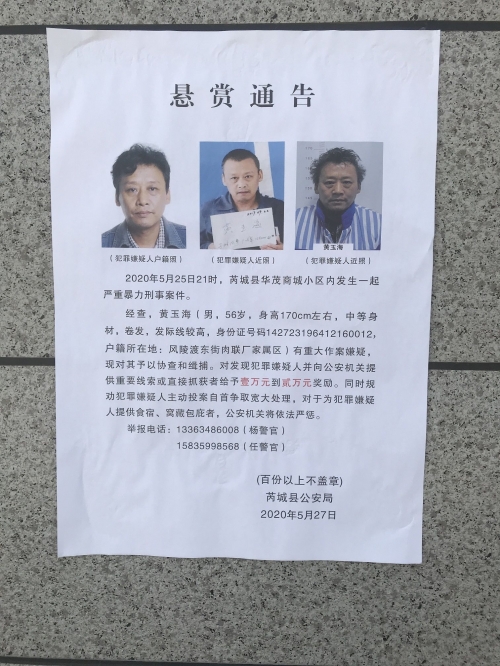 悬赏通告
黄玉海
(犯罪嫌疑人户籍照)
(犯罪嫌疑人近照)
(犯罪嫌疑人近照)
2020年5月25日21时，芮城县华茂商城小区内发生一起
严重暴力刑事案件。
经查，黄玉海（男，56岁，身高170cm左右，中等身
材，卷发，发际线较高，身份证号码142723196412160012，
户籍所在地：风陵渡东街肉联厂家属区）有重大作案嫌疑，
现对其予以协查和缉捕。对发现犯罪嫌疑人并向公安机关提
供重要线索或直接抓获者给予壹万元到贰万元奖励。同时规
劝犯罪嫌疑人主动投案自首争取宽大处理，对于为犯罪嫌疑
人提供食宿、窝藏包庇者，公安机关将依法严惩。
举报电话：13363486008（杨警官）
15835998568（任警官）
(百份以上不盖章)
芮城县公安局
2020年5月27日